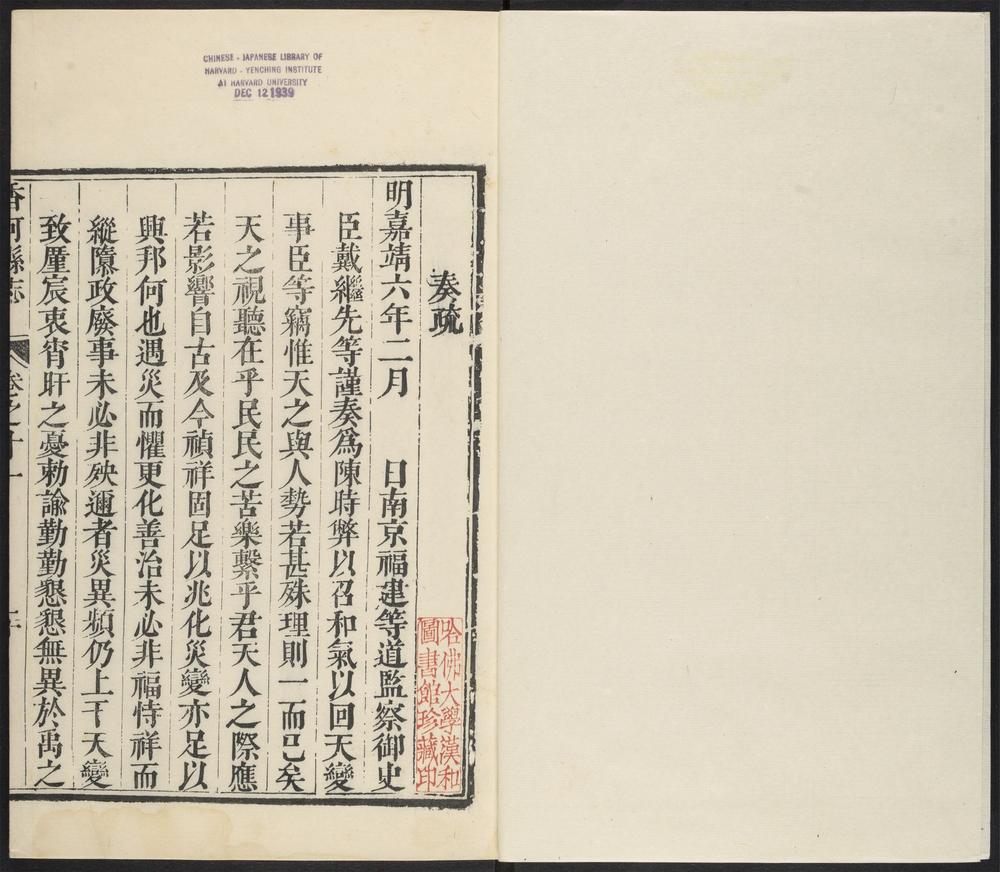 CHINESE - JAPANESE LIBRARY OF
HARVARD - YENCHING INSTITUTE
AT HARVARD UNIVERSITY
DEC 12 1939
奏疏
哈佛大學漢和
圖書館珍藏印
明嘉靖六年二月　日南京福建等道監察御史
臣戴繼先等謹奏爲陳時弊以召和氣以回天變
事臣等竊惟天之與人勢若甚殊理則一而已矣
天之視聽在乎民民之苦樂繫乎君天人之際應
若影響自古及今禎祥固足以兆化災變亦足以
興邦何也遇災而懼更化善治未必非福恃祥而
縱隳政廢事未必非殃邇者災異頻仍上干天變
致厪宸衷宵旰之憂勅諭勤勤懇懇無異於禹之
香河縣志 卷之十一